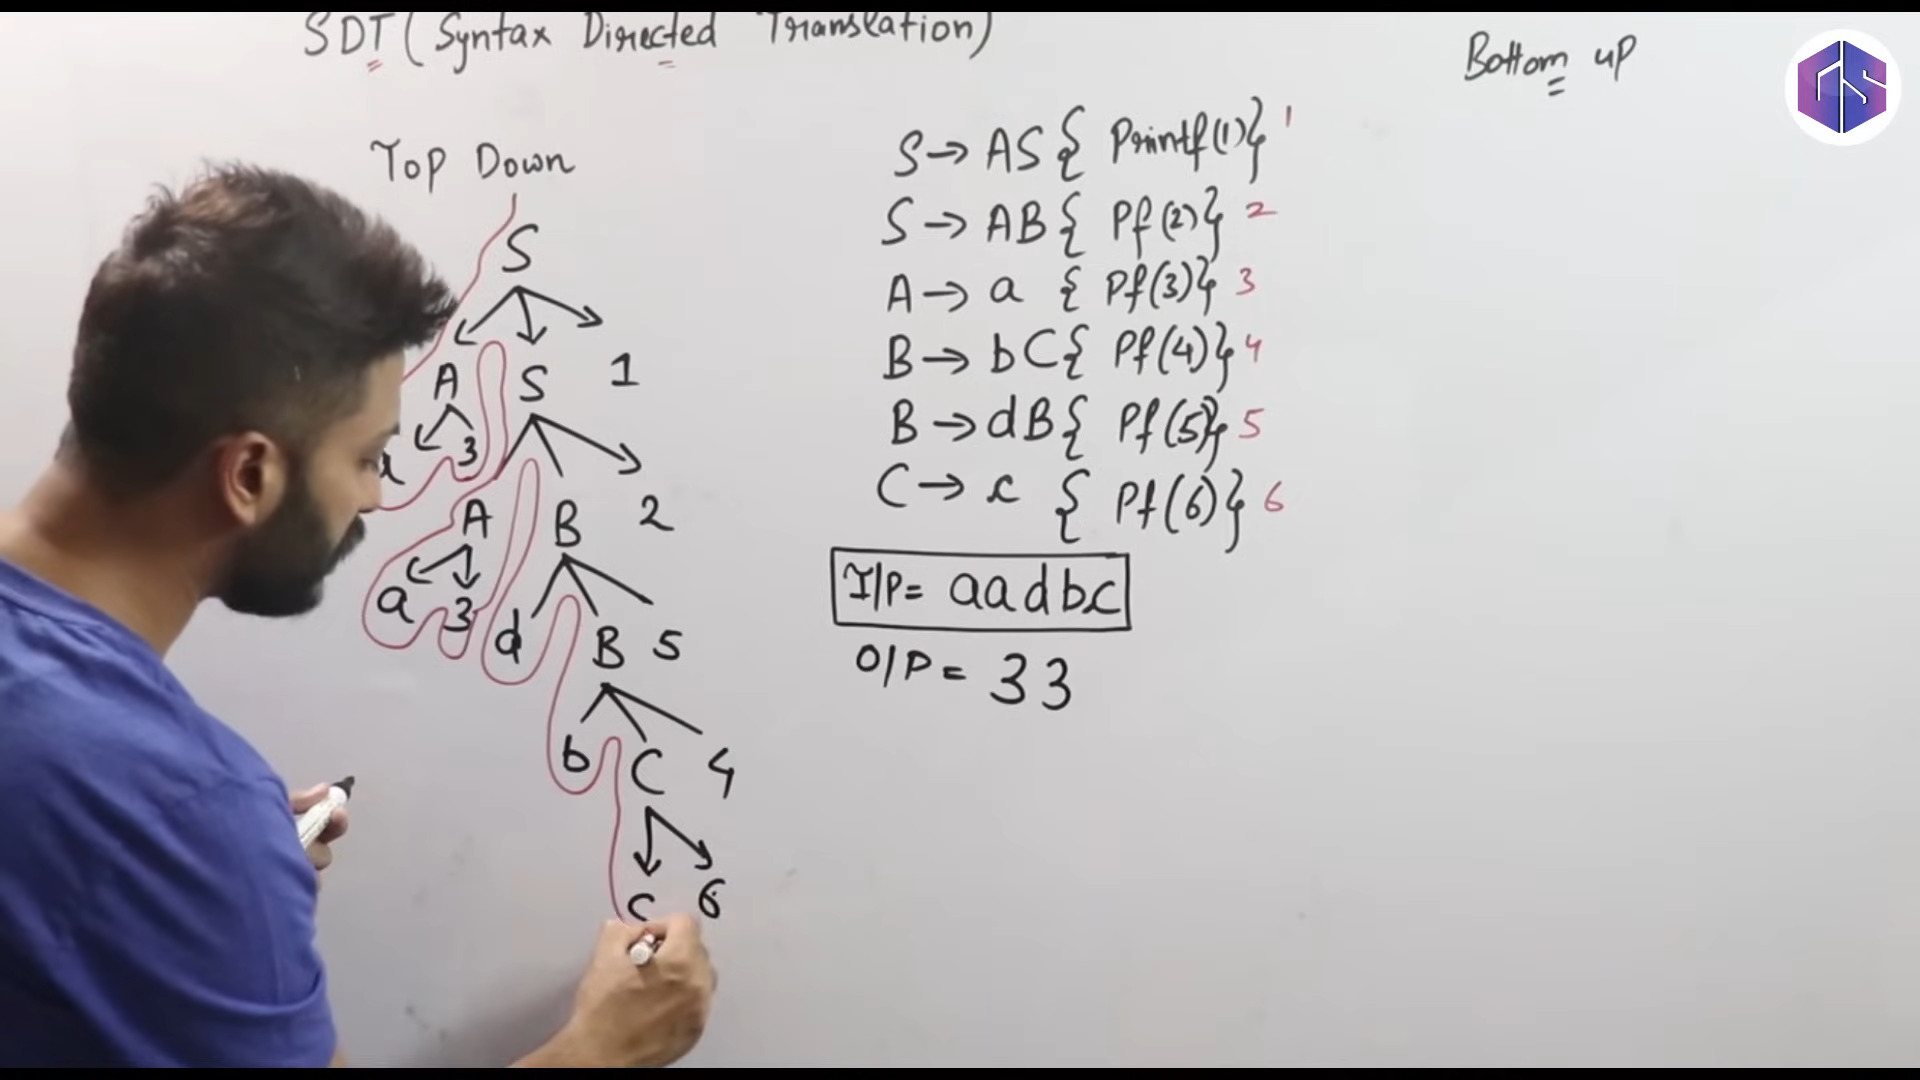 SDT ( Syntax Directed Translation )
Bottom up
Top Down
S
A S 1
3
A B 2
a 3
d B 5
b C 4
c 6
S → AS { Printf(1)} 1
S → AB { Pf(2)} 2
A → a { Pf(3)} 3
B → bC { Pf(4)} 4
B → dB { Pf(5)} 5
C → c { Pf(6)} 6
I/P = aadbc
O/P = 33
GS